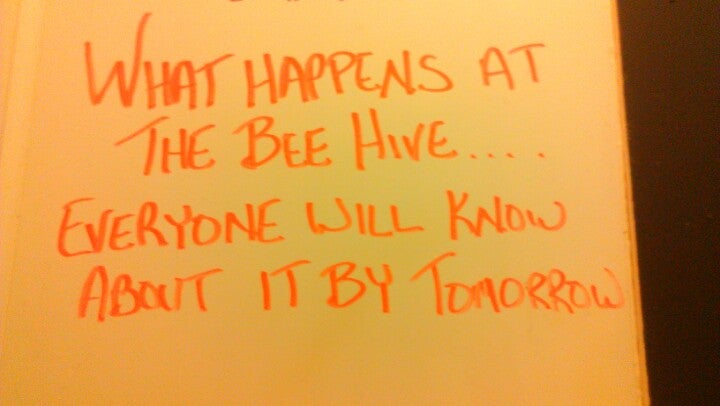 WHAT HAPPENS AT
THE BEE HIVE....
EVERYONE WILL KNOW
ABOUT IT BY TOMORROW